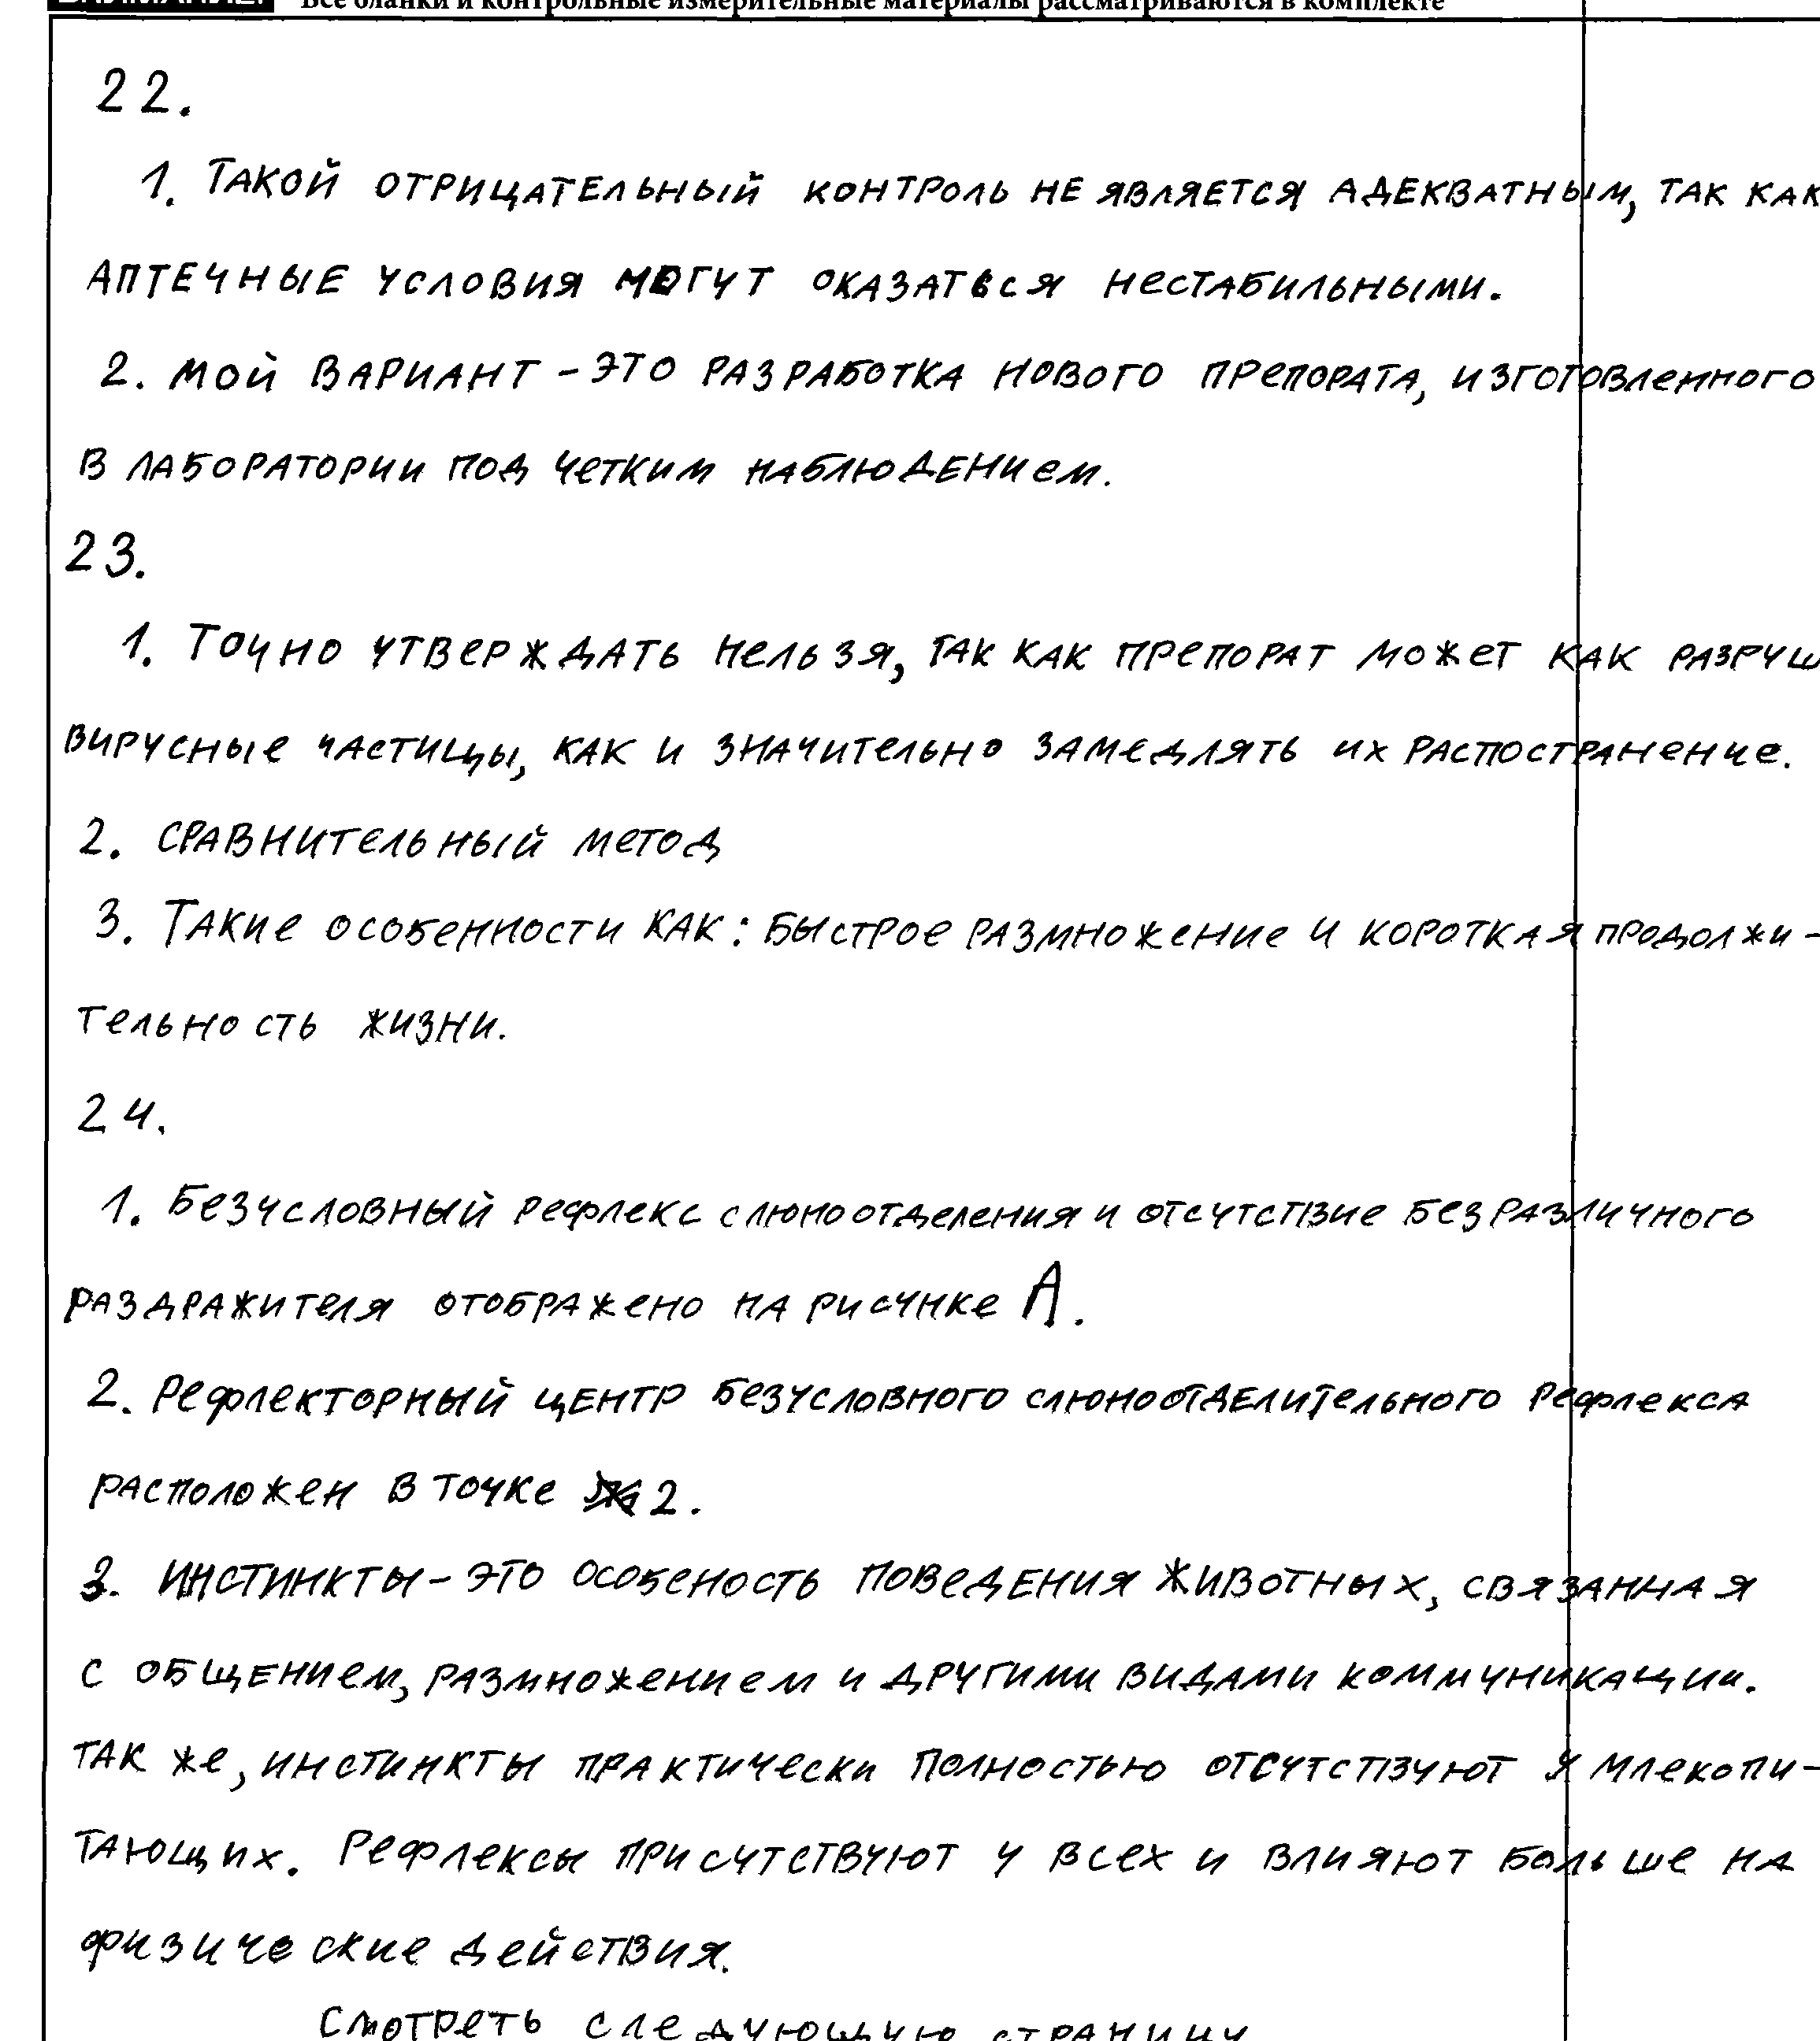 ВНИМАНИЕ! Все бланки и контрольные измерительные материалы рассматриваются в комплекте
22.
1. Такой отрицательный контроль не является адекватным, так как
аптечные условия могут оказаться нестабильными.
2. мой вариант - это разработка нового препората, изготовленного
в лаборатории под четким наблюдением.
23.
1. Точно утверждать нельзя, так как препорат может как разруш
вирусные частицы, как и значительно замедлять их распостранение.
2. сравнительный метод
3. Такие особенности как: быстрое размножение и короткая продолжи-
тельность жизни.
24.
1. Безусловный рефлекс слюноотделения и отсутствие безразличного
раздражителя отображено на рисунке А.
2. Рефлекторный центр безусловного слюноотделительного рефлекса
расположен в точке 2.
3. Инстинкты - это особеность поведения животных, связанная
с общением, размножением и другими видами коммуникации.
так же, инстинкты практически полностью отсутствуют у млекопи-
тающих. Рефлексы присутствуют у всех и влияют больше на
физические действия.
Смотреть следующую страницу